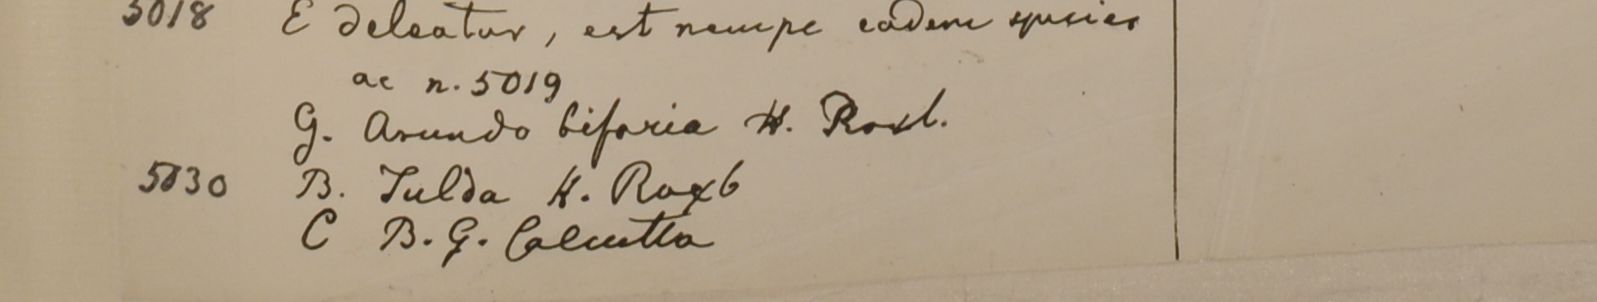 5018 E deleatur, est nempe eadem species
ac n. 5019
G. Arundo bifaria H. Roxb.
5030 B. Tulda H. Roxb
C B. G. Calcutta